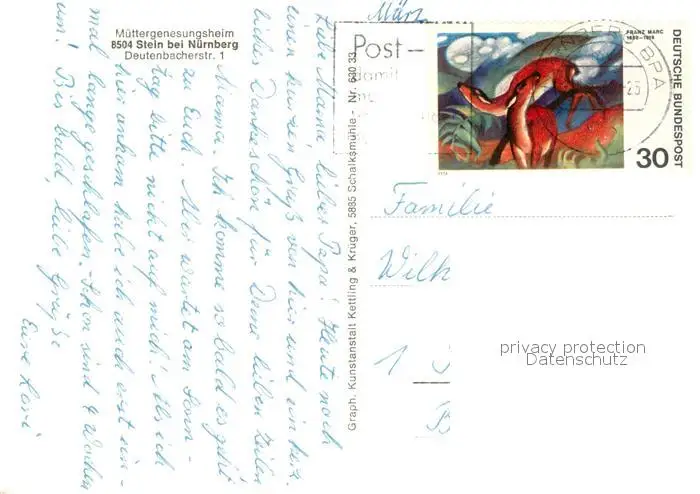 Müttergenesungsheim
8504 Stein bei Nürnberg
Deutenbacherstr. 1
März
Liebe Mama, lieber Papa! Heute noch
einen kurzen Gruß von hier und ein herz-
liches Dankeschön für Deine lieben Zeilen
Mama. Ich komme so bald es geht
zu Euch. Mir wartet am Sonn-
tag bitte nicht auf mich! Als ich
hier ankam habe ich auch erst ein-
mal lange geschlafen. Schon sind 4 Wochen
um! Bis bald, liebe Grüße
Eure Lori
Graph. Kunstanstalt Kettling & Krüger, 5885 Schalksmühle - Nr. 630 33
Post-
damit
BPA
FRANZ MARC
1880-1916
DEUTSCHE BUNDESPOST
30
Familie
Wilh
1
privacy protection
Datenschutz